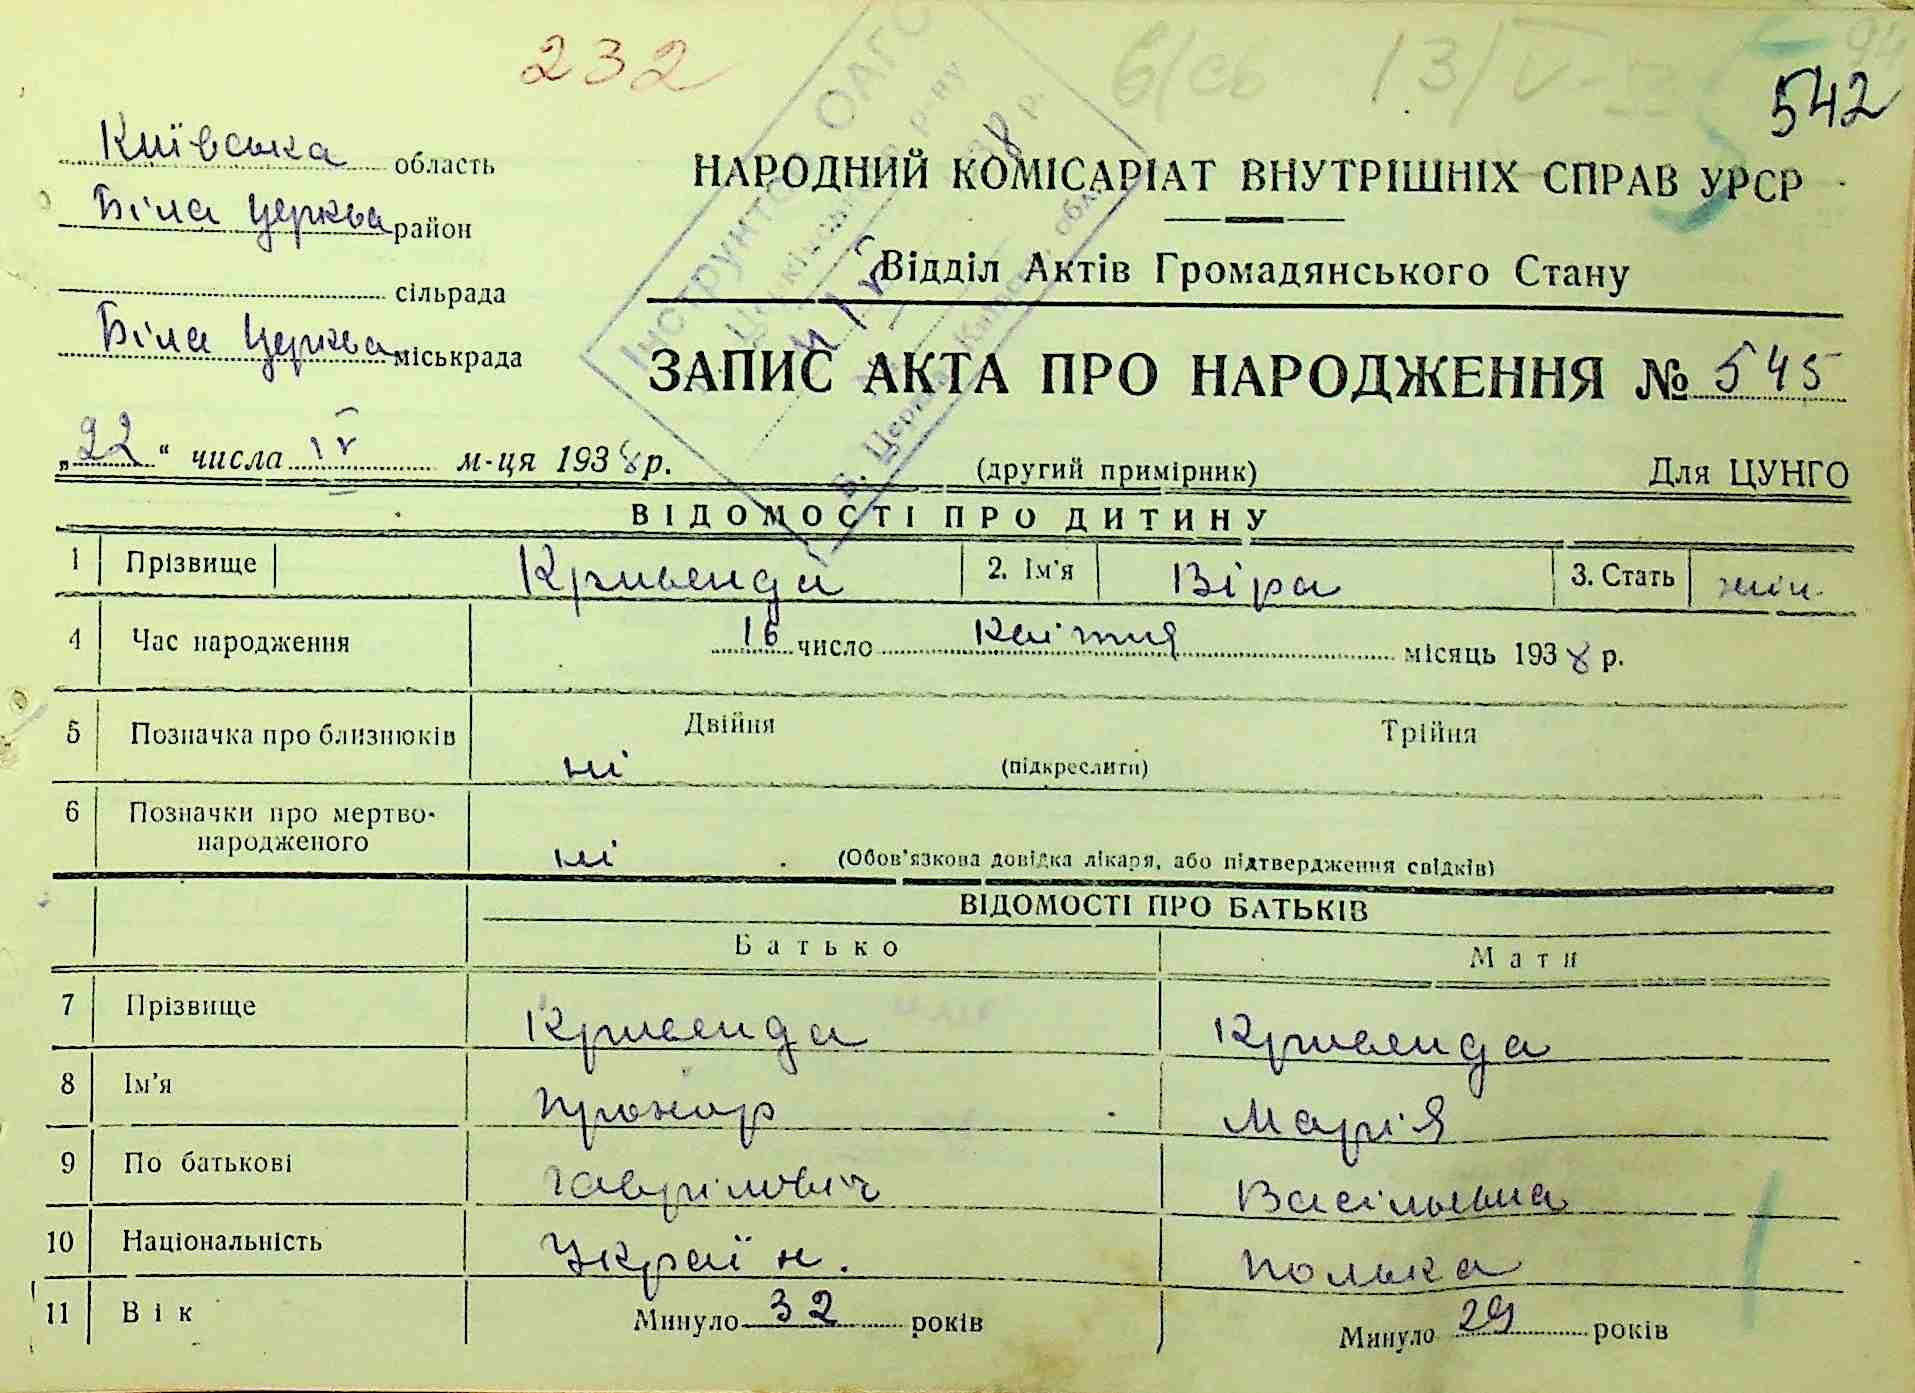 232
542
Київська область
Біла Церква район
сільрада
Біла Церква міськрада
НАРОДНИЙ КОМІСАРІАТ ВНУТРІШНІХ СПРАВ УРСР
Відділ Актів Громадянського Стану
ЗАПИС АКТА ПРО НАРОДЖЕННЯ № 545
„22“ числа IV м-ця 1938 р.
(другий примірник)
Для ЦУНГО
ВІДОМОСТІ ПРО ДИТИНУ
1 Прізвище Кривенда 2. Ім'я Віра 3. Стать жін.
4 Час народження 16 число Квітня місяць 1938 р.
5 Позначка про близнюків Двійня Трійня
ні (підкреслити)
6 Позначки про мертво-
народженого
ні (Обов'язкова довідка лікаря, або підтвердження свідків)
ВІДОМОСТІ ПРО БАТЬКІВ
Батько Мати
7 Прізвище Кривенда Кривенда
8 Ім'я Прокор Марія
9 По батькові Гаврілович Васільевна
10 Національність Україн. полька
11 Вік Минуло 32 років Минуло 29 років